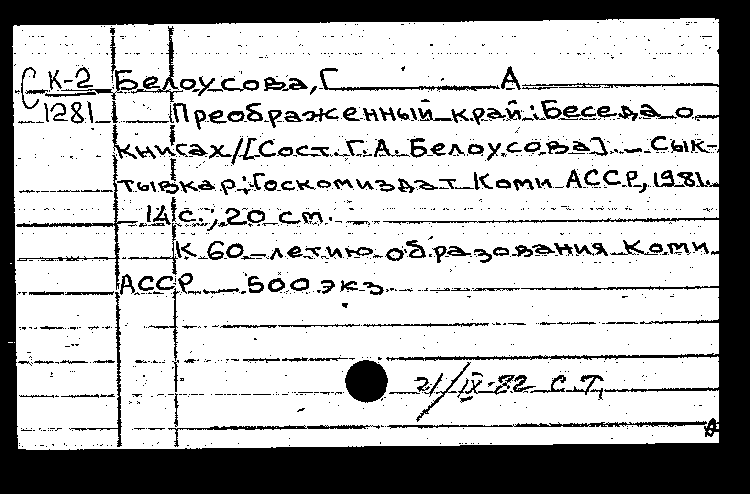 С К-2 Белоусова, Г А
1281 Преображенный край: Беседа о
книгах/[Сост. Г.А. Белоусова]. – Сык-
тывкар; Госкомиздат Коми АССР, 1981.
14 с.; 20 см.
К 60-летию образования Коми
АССР 500 экз
21/IX-82 С.Т.